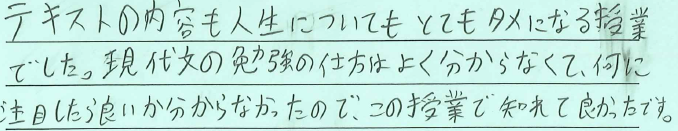 テキストの内容も人生についてもとてもタメになる授業
でした。現代文の勉強の仕方はよく分からなくて、何に
注目したら良いか分からなかったので、この授業で知れて良かったです。